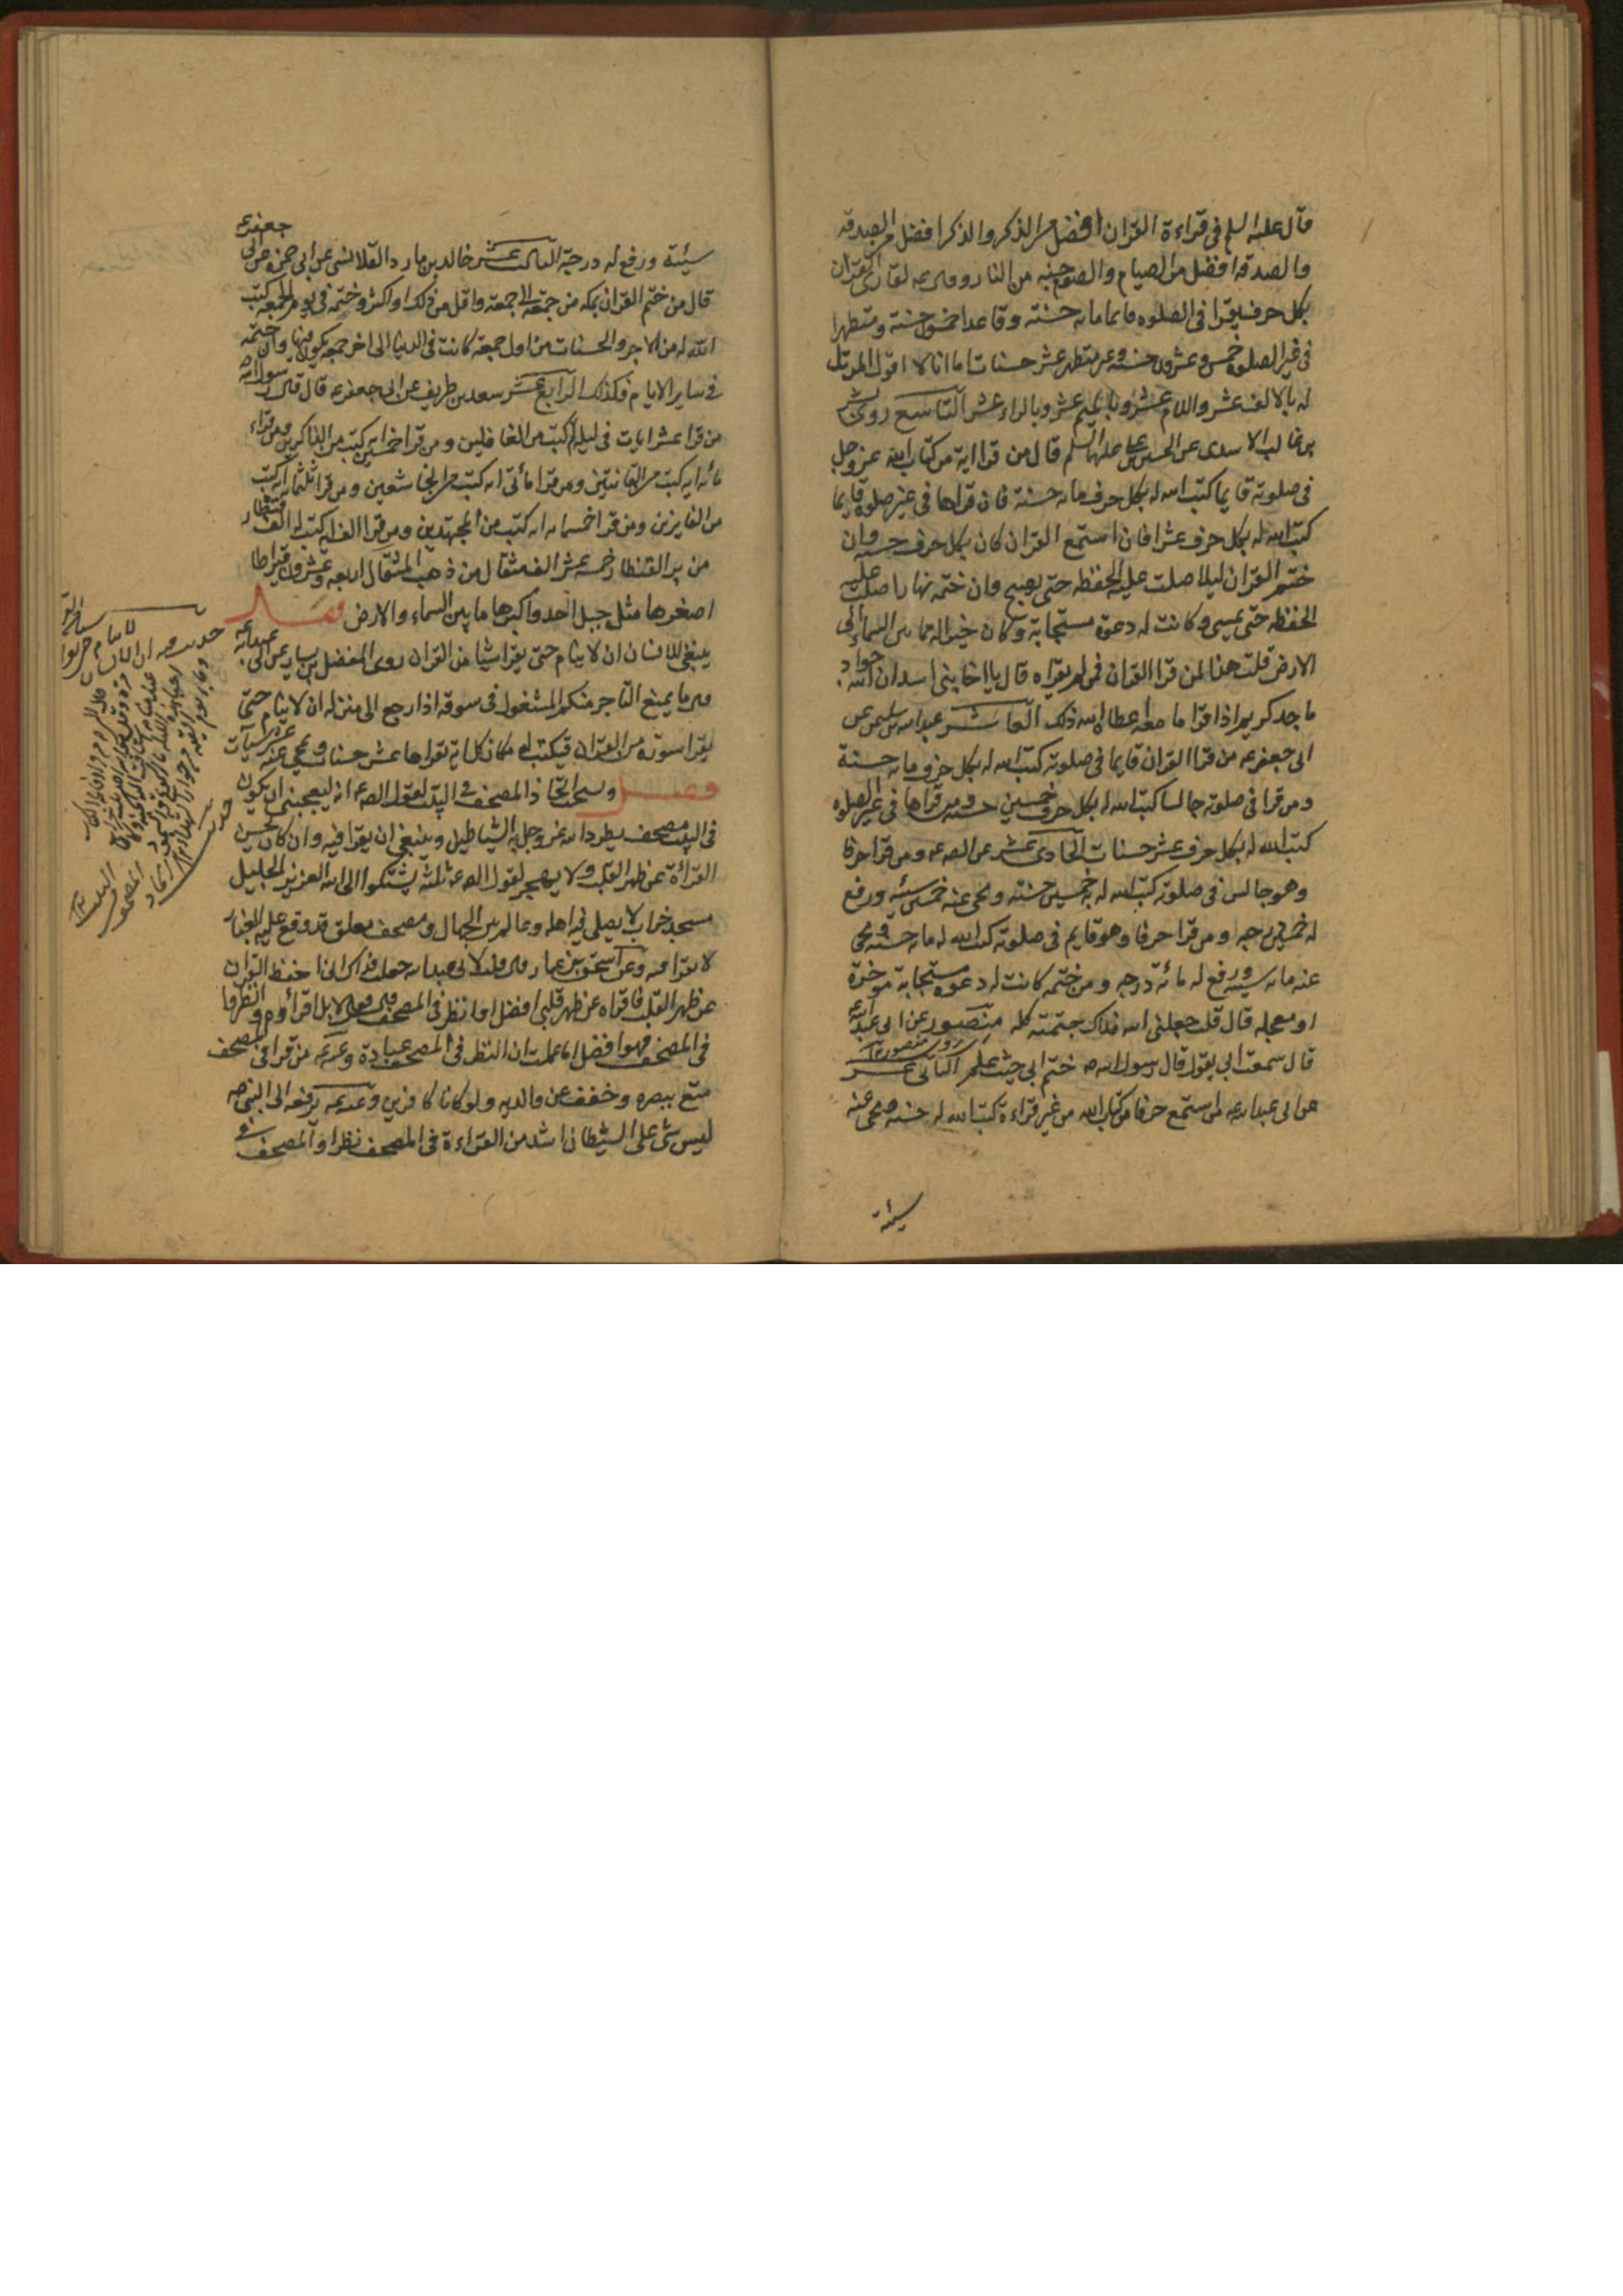 قال عليه السلم في قراءة القران افضل من الذكر والذكر افضل من الصدقه
والصدقه افضل من الصيام والصوم جنه من النار وقال ع لقارئ القران
بكل حرف يقرا في الصلوه قايما مايه حسنه وقاعدا خمسون حسنه ومتطهرا
في غير الصلوه خمس وعشرون حسنه وغير متطهر عشر حسنات اما انا لا اقول المر بل
له بالالف عشر واللام عشر وبالميم عشر وبالراء عشر التاسع روى بشر
بن غالب الاسدى عن الحسين بن علي عليهما السلم قال من قرا اية من كتاب الله عز وجل
في صلوته قايما كتب الله له بكل حرف مايه حسنة فان قراها في غير صلوة قايما
كتب الله له بكل حرف عشرا فان استمع القران كان بكل حرف حسنه وان
ختم القران ليلا صلت عليه الحفظه حتى يصبح وان ختمه نهارا صلت عليه
الحفظه حتى يمسى وكانت له دعوة مستجابة وكان خيرا له مما بين السماء الى
الارض قلت هذا لمن قرا القران فمن لم يقراه قال يا اخا بنى اسد ان الله جواد
ماجد كريم اذا قرا ما معه اعطاه الله ذلك العاشر عبد الله بن سليمن عن
ابى جعفر ع من قرا القران قايما في صلوته كتب الله له بكل حرف مايه حسنة
ومن قرا في صلوته جالسا كتب الله له بكل حرف خمسين حسنه ومن قراها في غير الصلوه
كتب الله له بكل حرف عشر حسنات الحادى عشر عن الص ع ومن قرا حرفا
وهو جالس في صلوته كتب الله له به خمسين حسنه ومحى عنه خمسين سيئه ورفع
له خمسين درجه ومن قرا حرفا وهو قايم في صلوته كتب الله له مايه حسنه ومحى
عنه مايه سيئه ورفع له مائة درجه ومن ختمه كانت له دعوه مستجابة موخرة
او معجله قال قلت جعلنى الله فداك ختمته كله منصور عن ابى عبد الله ع
قال سمعت ابى يقول قال رسول الله ص ختم الى حيث علم الثانى عشر
عن ابى عبد الله ع من استمع حرفا من كتاب الله من غير قراءة كتب الله له حسنه ومحى عنه
سيئة
جعفر ع
سيئة ورفع له درجة الثالث عشر خالد بن مارد القلانسى عن ابى حمزه عن ابى
قال من ختم القران بمكه من جمعة الى جمعة واقل من ذلك او اكثر وختمه في يوم الجمعه كتب
الله له من الاجر والحسنات من اول جمعة كانت في الدنيا الى اخر جمعه يكون فيها وان ختمه
في ساير الايام فكذلك الرابع عشر سعد بن طريف عن ابى جعفر ع قال قال رسول الله
من قرا عشر ايات في ليله لم يكتب من الغافلين ومن قرا خمسين ايه كتب من الذاكرين ومن قراء
مائه ايه كتب من القانتين ومن قرا مائتى ايه كتب من الخاشعين ومن قرا ثلثمائه ايه كتب
من الفايزين ومن قرا خمسمايه ايه كتب من المجتهدين ومن قرا الف ايه كتب له قنطار
من بر القنطار خمسه عشر الف مثقال من ذهب المثقال اربعه وعشرون قيراطا
اصغرها مثل جبل احد واكبرها ما بين السماء والارض فصل
ينبغى للانسان ان لا ينام حتى يقرا شيئا من القران روى المفضل بن يسار عن ابى عبد الله ع
قال ما يمنع التاجر منكم المشغول في سوقه اذا رجع الى منزله ان لا ينام حتى
يقرا سورة من القران فيكتب له مكان كل اية يقراها عشر حسنات ويمحى عنه عشر سيئات
فصل ويستحب اتخاذ المصحف في البيت لقول الص ع انه ليعجبنى ان يكون
في البيت مصحف يطرد الله عز وجل به الشياطين وينبغى ان يقرا فيه وان كان يحسن
القرائة عن ظهر القلب ولا يهجر لقول الص ع ثلثة يشتكوا الى الله العزيز الجليل
مسجد خراب لا يصلى فيه اهله وعالم بين الجهال ومصحف معلق قد وقع عليه الغبار
لا يقرا فيه وعن اسحق بن عمار قال قلت لابى عبد الله جعلت فداك انى احفظ القران
عن ظهر القلب فاقراه عن ظهر قلبى افضل او انظر في المصحف قال فقال لا بل اقرأه وانظر
في المصحف فهو افضل اما علمت ان النظر في المصحف عبادة وعنه ع من قرا في المصحف
متع ببصره وخفف عن والديه ولو كانا كافرين وعنه ع يرفعه الى النبى ص
ليس شئ على الشيطان اشد من القراءة في المصحف نظرا والمصحف في